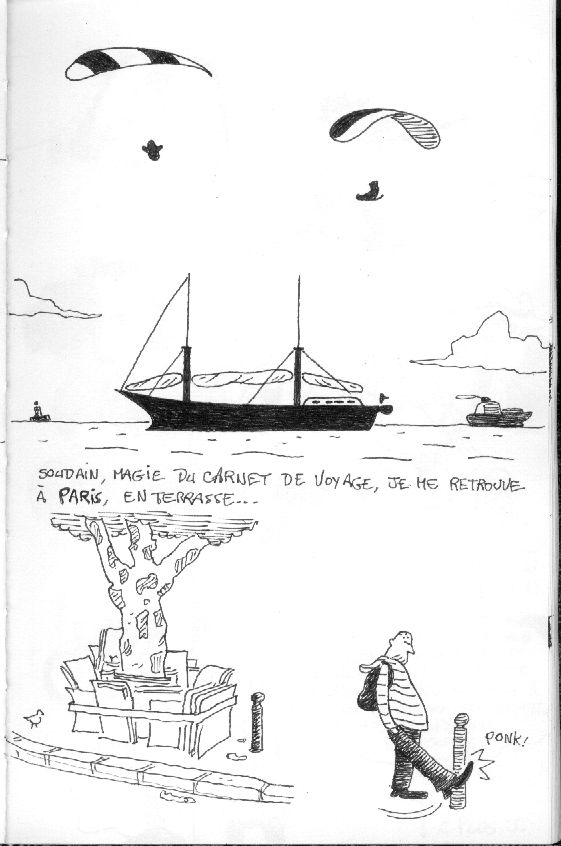 SOUDAIN, MAGIE DU CARNET DE VOYAGE, JE ME RETROUVE
À PARIS, EN TERRASSE...
PONK!